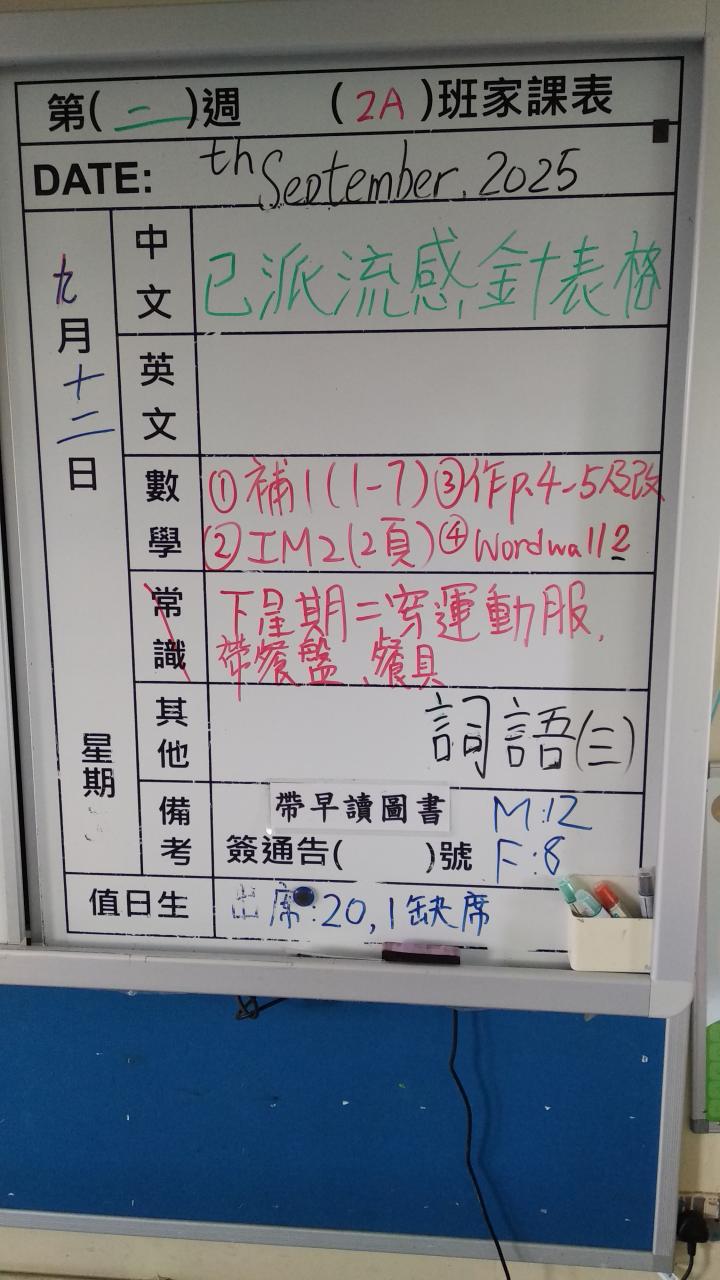 第(二)週 (2A)班家課表
DATE: th September, 2025
九月十二日
星期
中文 已派流感針表格
英文
數學 ①補1(1-7)③作p.4-5及改
②IM2(2頁)④Wordwall 2
常識 下星期二穿運動服,
帶餐盤、餐具
其他 詞語(三)
備考 帶早讀圖書 M:12
簽通告( )號 F:8
值日生 出席:20,1缺席